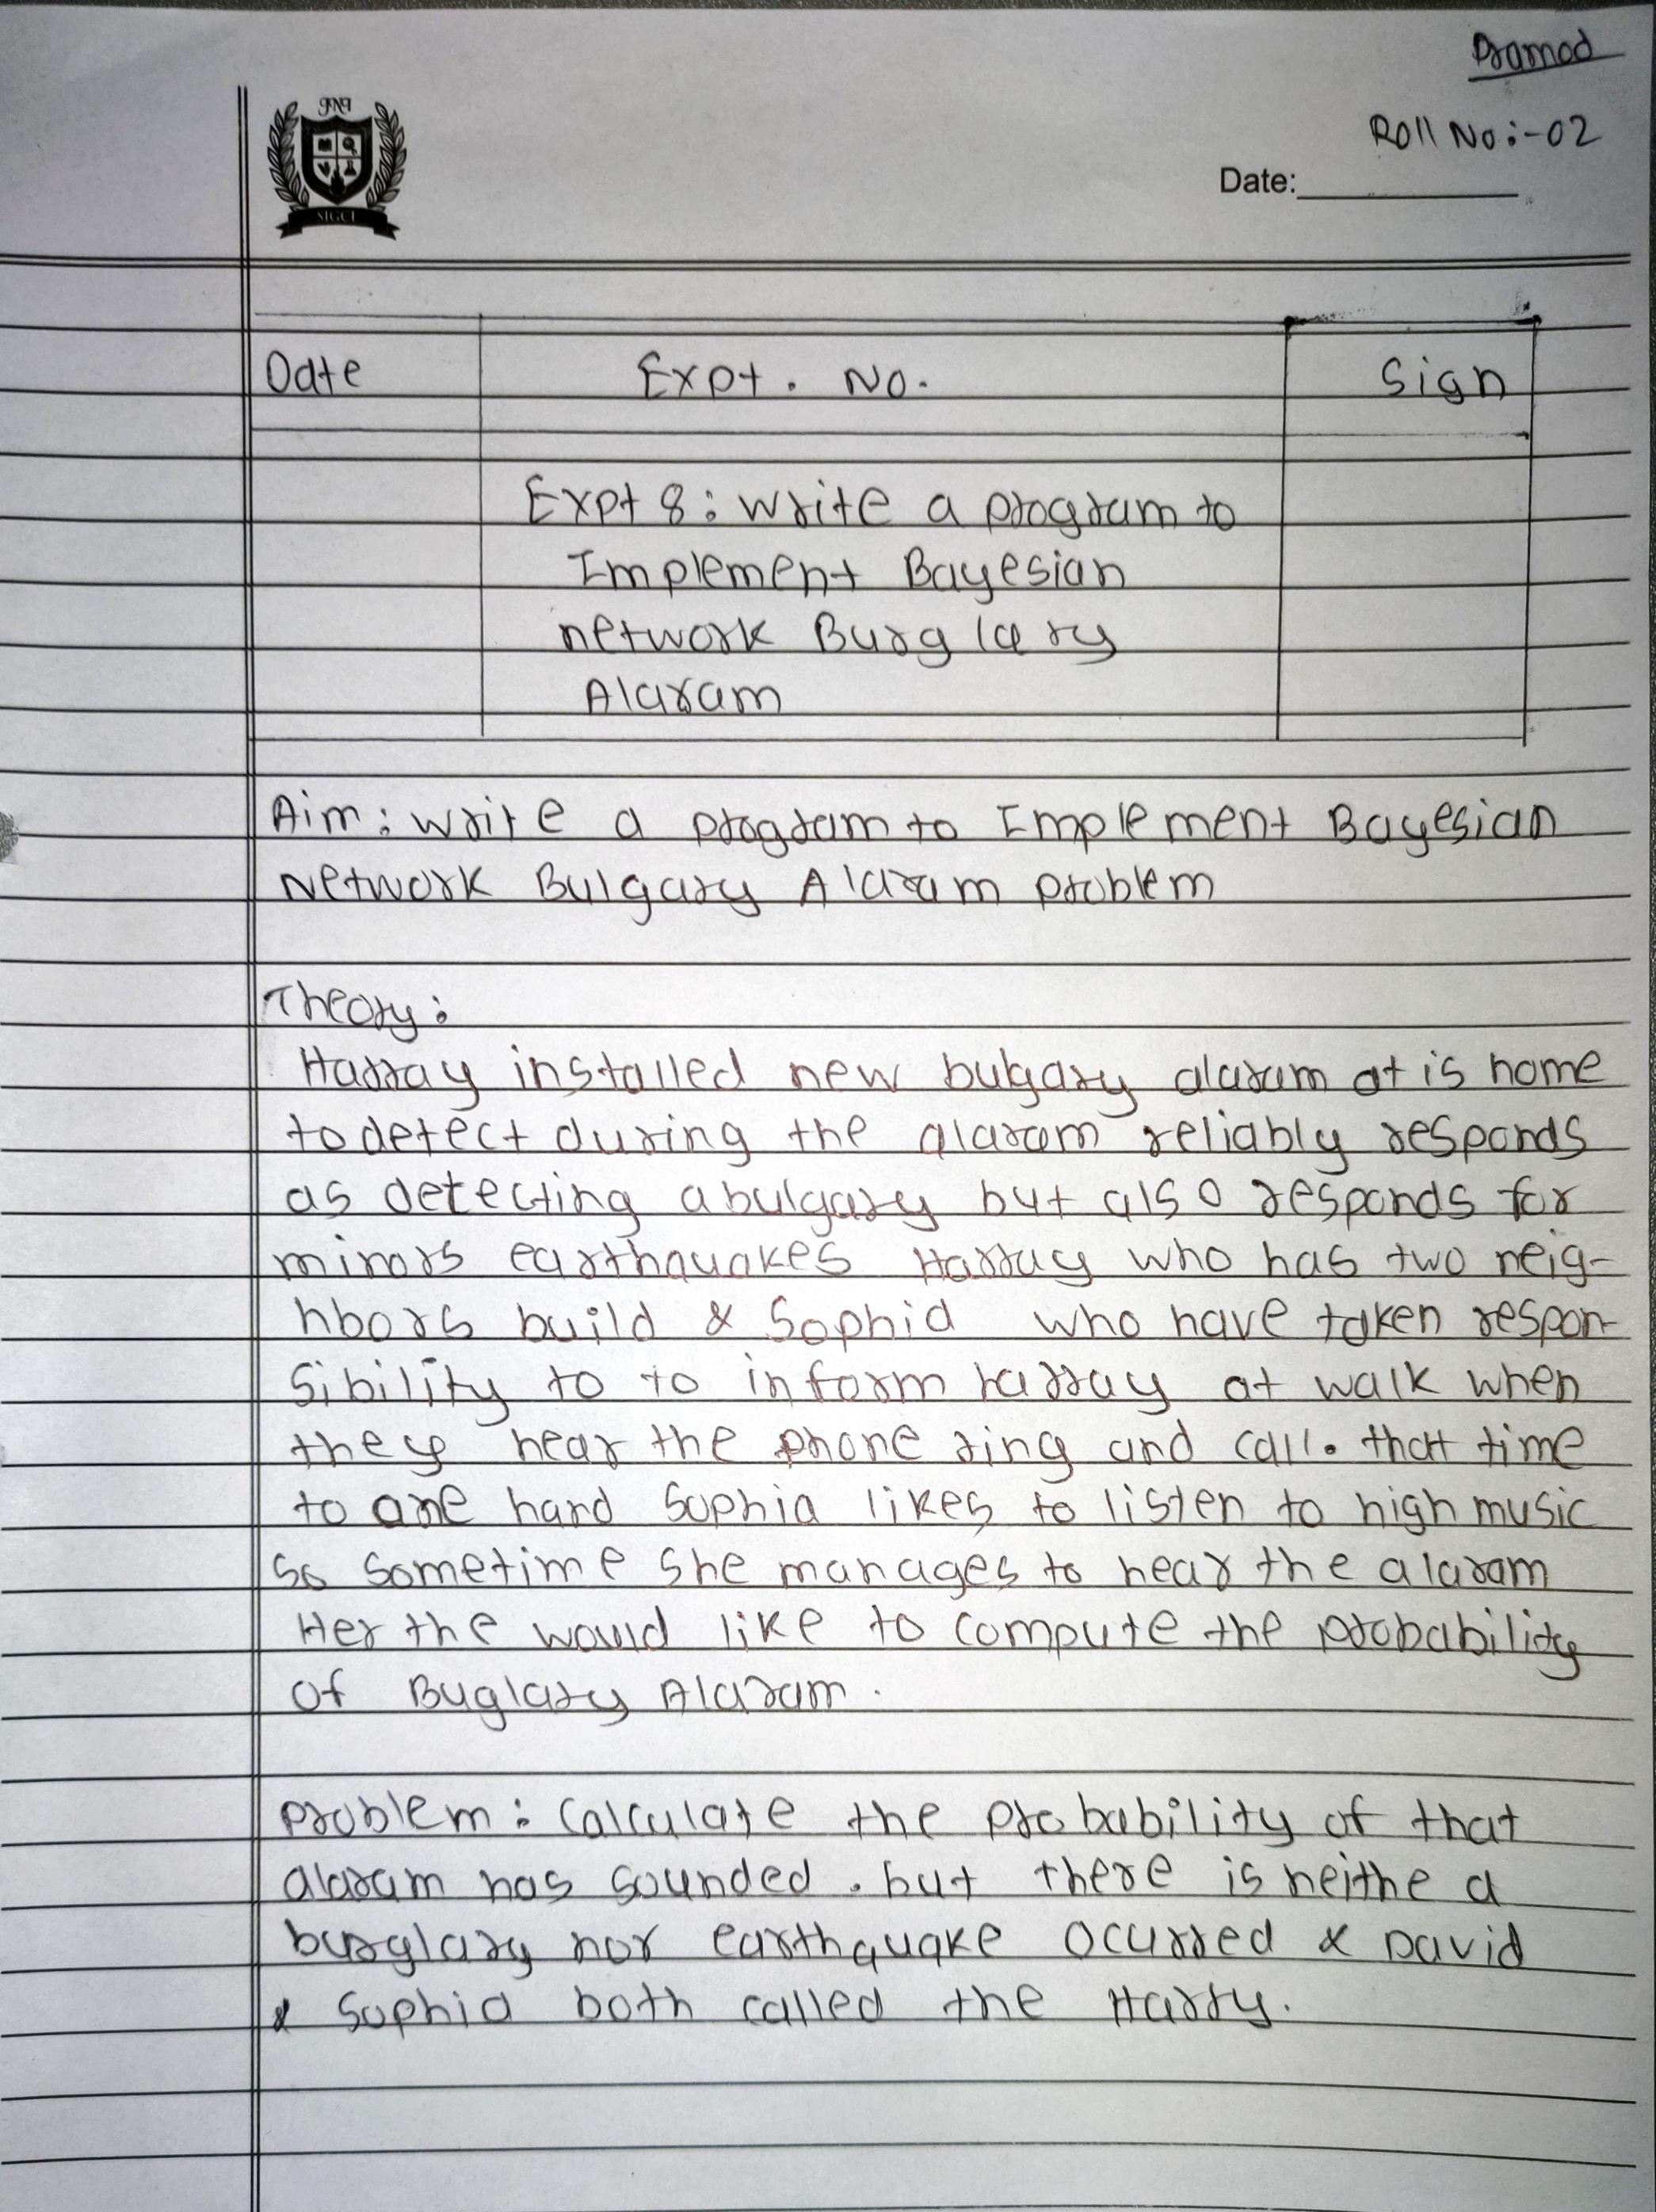 Pramod
Roll No:-02
Date:
Date Expt. No. Sign
Expt 8: Write a program to
Implement Bayesian
network Burglary
Alaram
Aim: Write a program to Implement Bayesian
Network Bulgary Alaram problem
Theory:
Harray installed new bulgary alaram at is home
to detect during the alaram reliably responds
as detecting a bulgary but also responds for
minors earthquakes Harray who has two neig-
hbors build & Sophia who have taken respon-
sibility to to inform harray at walk when
they hear the phone ring and call. that time
to one hand Sophia likes to listen to high music
So sometime she manages to hear the alaram
Her the would like to compute the probability
of Buglary Alaram.
Problem: Calculate the probability of that
alaram has sounded. but there is neithe a
burglary nor earthquake ocurred & David
& Sophia both called the Harry.